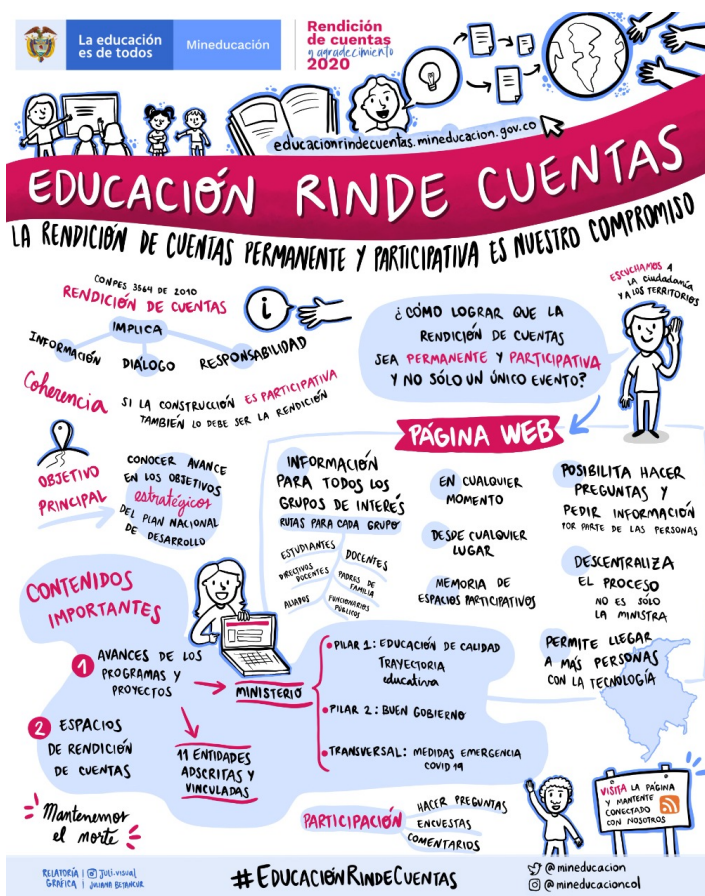 La educación
es de todos
Mineducación
Rendición
de cuentas
y agradecimiento
2020
educacionrindecuentas.mineducacion.gov.co
EDUCACIÓN RINDE CUENTAS
LA RENDICIÓN DE CUENTAS PERMANENTE Y PARTICIPATIVA ES NUESTRO COMPROMISO
CONPES 3564 DE 2010
RENDICIÓN DE CUENTAS
IMPLICA
INFORMACIÓN
DIÁLOGO
RESPONSABILIDAD
i
Coherencia
SI LA CONSTRUCCIÓN ES PARTICIPATIVA
TAMBIÉN LO DEBE SER LA RENDICIÓN
¿CÓMO LOGRAR QUE LA
RENDICIÓN DE CUENTAS
SEA PERMANENTE Y PARTICIPATIVA
Y NO SÓLO UN ÚNICO EVENTO?
ESCUCHAMOS A
LA CIUDADANÍA
Y A LOS TERRITORIOS
OBJETIVO
PRINCIPAL
CONOCER AVANCE
EN LOS OBJETIVOS
estratégicos
DEL PLAN NACIONAL
DE DESARROLLO
PÁGINA WEB
INFORMACIÓN
PARA TODOS LOS
GRUPOS DE INTERÉS
RUTAS PARA CADA GRUPO
ESTUDIANTES
DOCENTES
DIRECTIVOS
DOCENTES
PADRES DE
FAMILIA
ALIADOS
FUNCIONARIOS
PÚBLICOS
EN CUALQUIER
MOMENTO
DESDE CUALQUIER
LUGAR
MEMORIA DE
ESPACIOS PARTICIPATIVOS
POSIBILITA HACER
PREGUNTAS Y
PEDIR INFORMACIÓN
POR PARTE DE LAS PERSONAS
DESCENTRALIZA
EL PROCESO
NO ES SÓLO
LA MINISTRA
PERMITE LLEGAR
A MÁS PERSONAS
CON LA TECNOLOGÍA
CONTENIDOS
IMPORTANTES
1 AVANCES DE LOS
PROGRAMAS Y
PROYECTOS
MINISTERIO
PILAR 1: EDUCACIÓN DE CALIDAD
TRAYECTORIA
educativa
PILAR 2: BUEN GOBIERNO
TRANSVERSAL: MEDIDAS EMERGENCIA
COVID 19
2 ESPACIOS
DE RENDICIÓN
DE CUENTAS
11 ENTIDADES
ADSCRITAS Y
VINCULADAS
Mantenemos
el norte
PARTICIPACIÓN
HACER PREGUNTAS
ENCUESTAS
COMENTARIOS
VISITA LA PÁGINA
Y MANTENTE
CONECTADO
CON NOSOTROS
RELATORÍA | @JULI.VISUAL
GRÁFICA | JULIANA BETANCUR
#EDUCACIÓNRINDECUENTAS
@mineducacion
@mineducacioncol